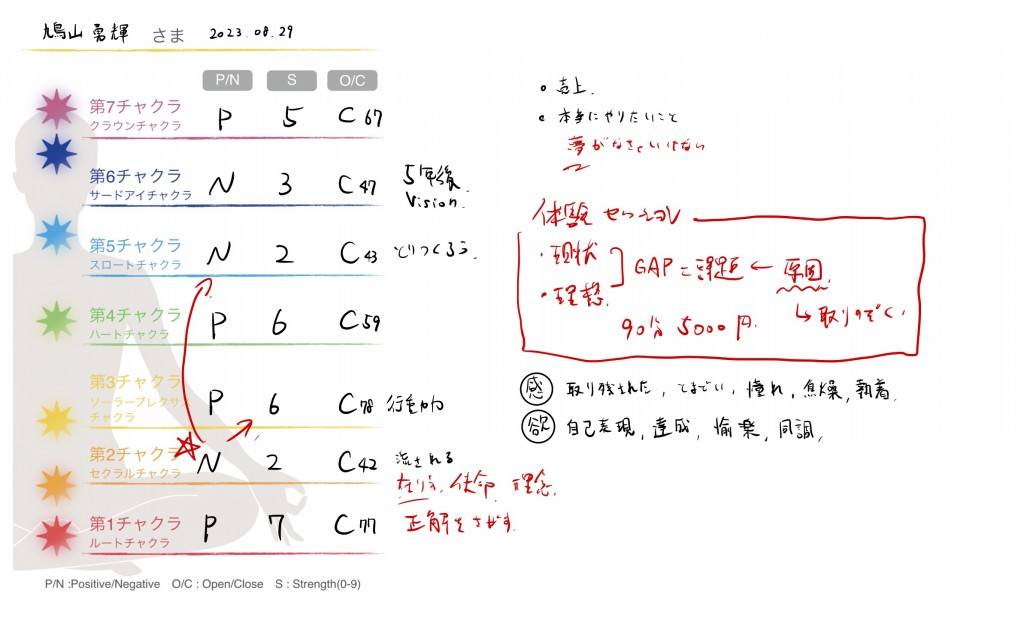 鳩山 勇輝 さま 2023.08.29
P/N S O/C
第7チャクラ P 5 C 67
クラウンチャクラ
第6チャクラ N 3 C 47 5年後
サードアイチャクラ Vision.
第5チャクラ N 2 C 43 とりつくろう
スロートチャクラ
第4チャクラ P 6 C 59
ハートチャクラ
第3チャクラ
ソーラープレクサス P 6 C 78 行動力
チャクラ
第2チャクラ N 2 C 42 流される
セクラルチャクラ
在り方、使命 理念.
第1チャクラ P 7 C 77 正解をさがす.
ルートチャクラ
P/N :Positive/Negative O/C : Open/Close S : Strength(0-9)
売上.
本当にやりたいこと
夢がなきゃいけない
体験セッション
・現状
・理想
GAP = 課題 ← 原因.
90分 5000円.
↳取りのぞく.
感 取り残された, とまどい, 憧れ, 焦燥, 執着.
欲 自己表現, 達成, 愉楽, 同調,